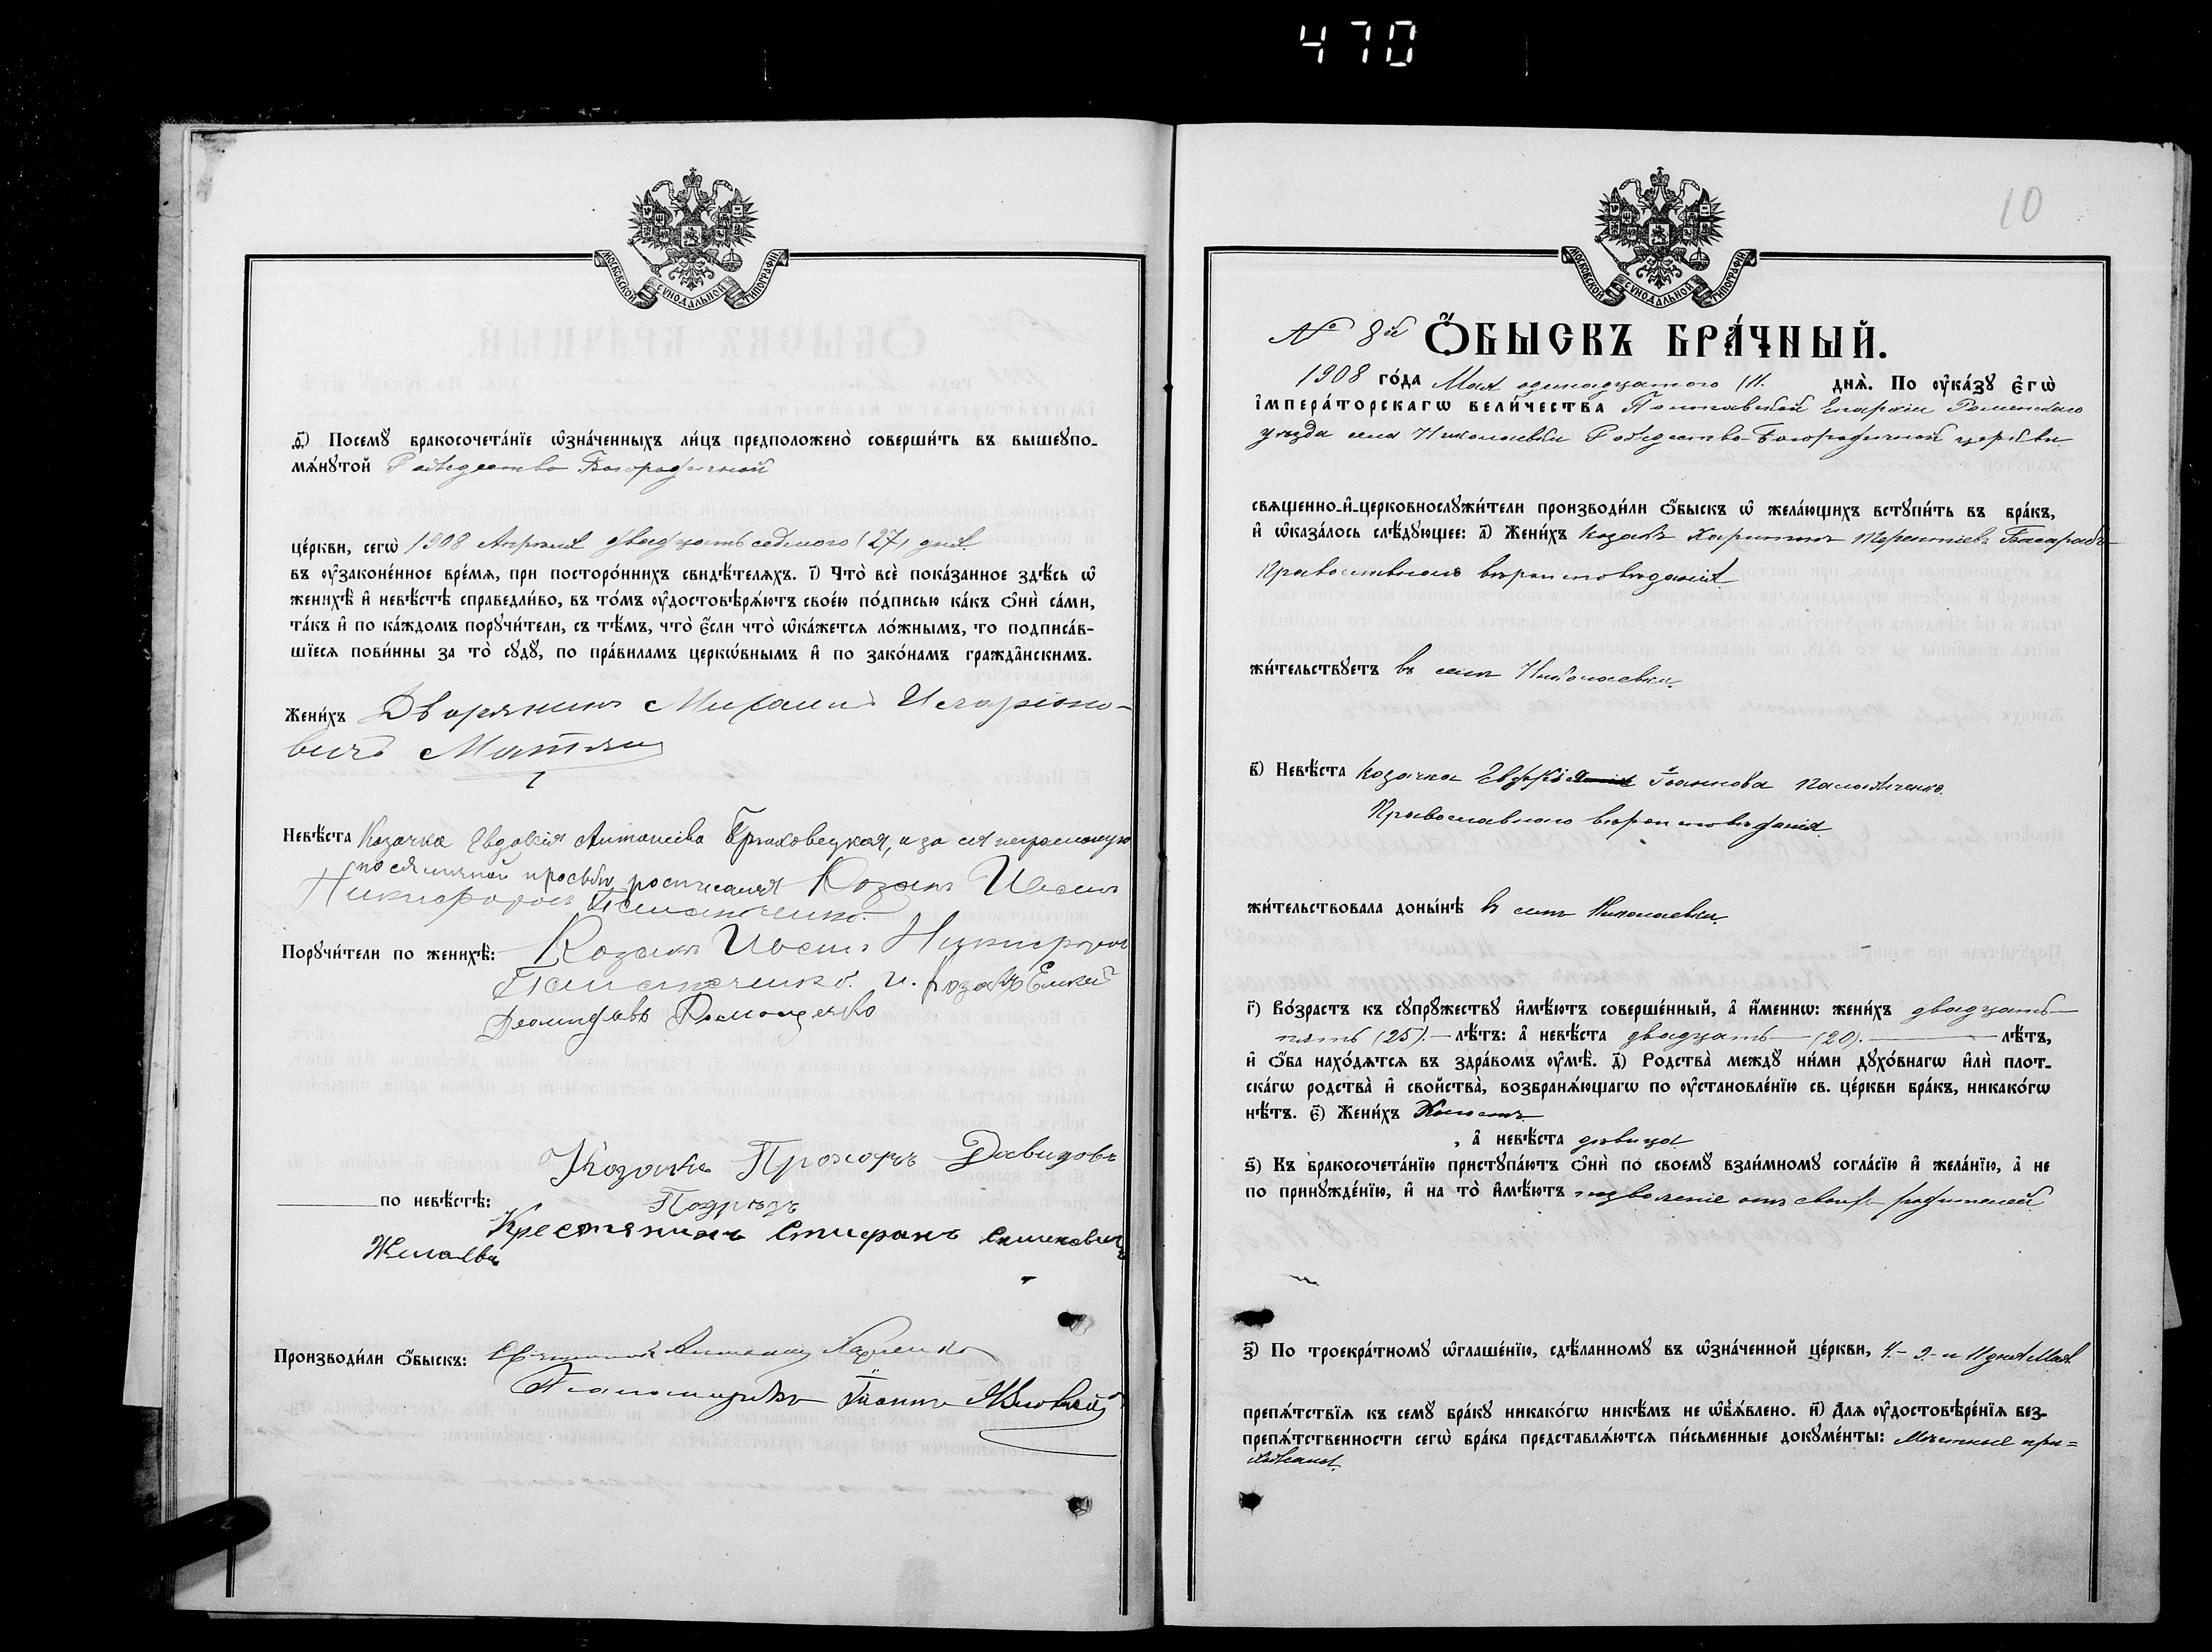 470
МОСКОВСКОЙ СУНОДАЛЬНОЙ ТИПОГРАФІИ
ѳ҃) Посемꙋ бракосочета́нїе ѡзна́ченныхъ ли́цъ предположено̀ соверши́ть въ вышеꙋпо-
мѧ́нꙋтой Рождество-Богородичной
це́ркви, сегѡ̀ 1908 Апрѣля двадцать седьмого (27) дня.
въ ᲂу҆законе́нное вре́мѧ, при посторо́ннихъ свидѣ́телѧхъ. і҃) Что̀ всѐ пока́занное здѣ́сь ѡ
женихѣ̀ и҆ невѣ́стѣ справедли́во, въ то́мъ ᲂу҆достовѣрѧ́ютъ свое́ю по́дписью ка́къ ѻ҆нѝ са́ми,
та́къ и҆ по ка́ждомъ порꙋчи́тели, съ тѣ́мъ, что̀ є҆́сли что̀ ѡ҆ка́жетсѧ ло́жнымъ, то подписа́в-
шїесѧ пови́нны за то̀ сꙋдꙋ̀, по пра́виламъ церкѡ́внымъ и҆ по зако́намъ гражда̑нскимъ.
Жени́хъ Дворянинъ Михаилъ Иларіоно-
вичъ
Невѣ́ста Козачка Евдокія Антоніева Бряховецкая, а за ея неграмотную
по ея личной просьбѣ росписался Козакъ Иванъ
Никифоровъ Паламаченко.
Порꙋчи́тели по женихѣ̀: Козакъ Иванъ Никифоровъ
Паламаченко. и. Козакъ
Ромащенко
Козакъ Прохоръ Давидовъ
по невѣ́стѣ:
Крестянинъ Стифанъ
Производи́ли ѻ҆́быскъ: Священникъ
Псаломщикъ Іоаннъ
10
МОСКОВСКОЙ СУНОДАЛЬНОЙ ТИПОГРАФІИ
№ 8й Ѻ҆́БЫСКЪ БРА́ЧНЫЙ.
1908 го́да Мая одинадцатого (11. днѧ̀. По ᲂу҆ка́зꙋ є҆гѡ̀
і҆мпера́торскагѡ вели́чества Полтавской Епархіи Роменскаго
уѣзда села Николаевки Рождество-Богородичной церкви
свѧщенно-и҆-церковнослꙋжи́тели производи́ли ѻ҆́быскъ ѡ жела́ющихъ встꙋпи́ть въ бра́къ,
и҆ ѡ҆каза́лось слѣ́дꙋющее: а҃) Жени́хъ козакъ Харитонъ Терентіевъ Басарабъ
Православнаго вѣроисповѣданія
жи́тельствꙋетъ въ селѣ Николаевки.
в҃) Невѣ́ста козачка Іоаннова Паламаченко.
Православнаго вѣроисповѣданія.
жи́тельствовала доны́нѣ въ селѣ Николаевки.
г҃) Во́зрастъ къ сꙋпрꙋ́жествꙋ и҆мѣ́ютъ соверше́нный, а҆ и҆́меннѡ: жени́хъ двадцать
пять (25). лѣ́тъ: а҆ невѣ́ста двадцать (20). лѣ́тъ,
и҆ ѻ҆́ба нахо́дѧтсѧ въ здра́вомъ ᲂу҆мѣ̀. д҃) Родства̀ междꙋ̀ ни́ми дꙋхо́внагѡ и҆лѝ плот-
ска́гѡ родства̀ и҆ свойства̀, возбранѧ́ющагѡ по ᲂу҆становле́нїю св. це́ркви бра́къ, никако́гѡ
нѣ́тъ. є҃) Жени́хъ Холостъ
, а҆ невѣ́ста дѣвица
ѕ҃) Къ бракосочета́нїю пристꙋпа́ютъ ѻ҆нѝ по своемꙋ̀ взаи́мномꙋ согла́сїю и҆ жела́нїю, а҆ не
по принꙋжде́нїю, и҆ на то̀ и҆мѣ́ютъ позволеніе отъ своихъ родителей
з҃) По троекра́тномꙋ ѡ҆глаше́нїю, сдѣ́ланномꙋ въ ѡ҆зна́ченной це́ркви, 4.- 9.- и 11 дня Мая.
препѧ́тствїѧ къ семꙋ̀ бра́кꙋ никако́гѡ никѣ́мъ не ѡ҆б̾ѧ́влено. и҃) Длѧ ᲂу҆достовѣре́нїѧ без-
препѧ́тственности сегѡ̀ бра́ка представлѧ́ютсѧ пи́сьменные докꙋме́нты: Мѣстные при=
хожане.